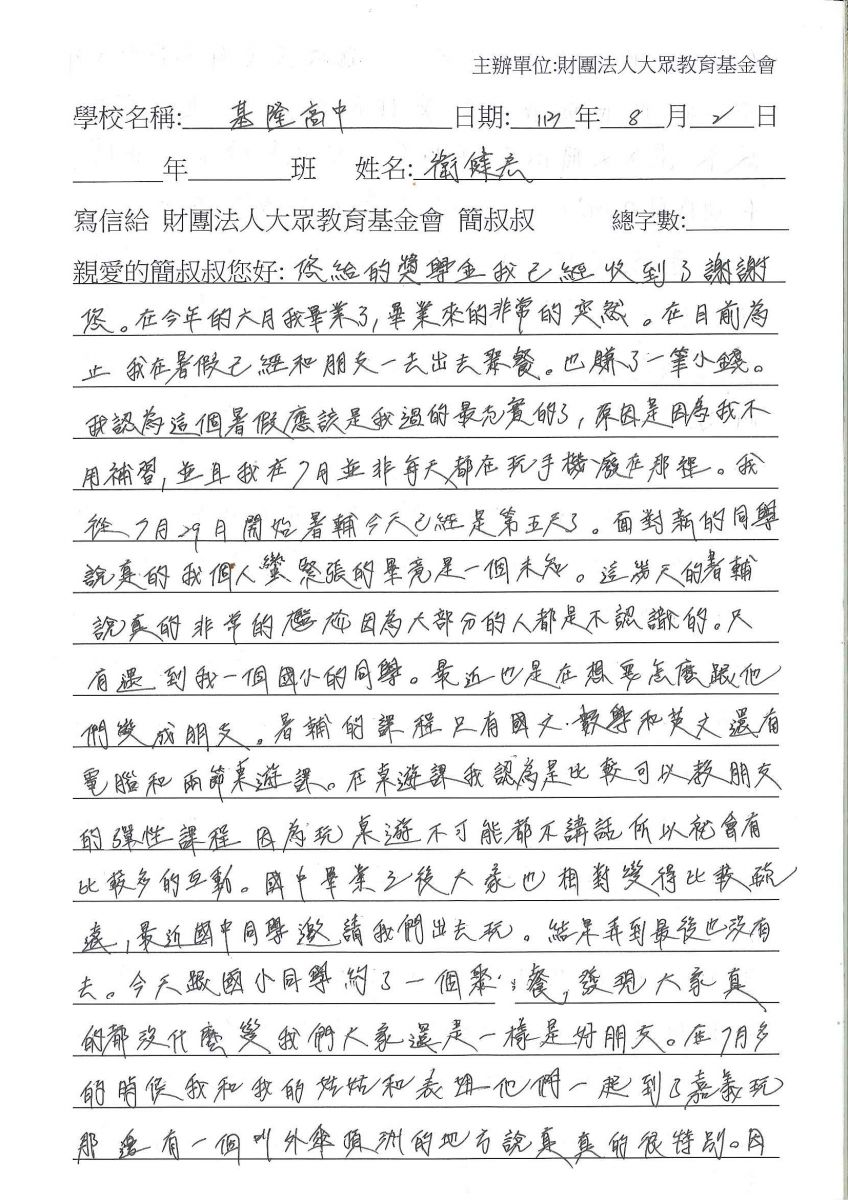 主辦單位:財團法人大眾教育基金會
學校名稱: 基隆高中 日期: 113 年 8 月 2 日
年 班 姓名: 衛健宏
寫信給 財團法人大眾教育基金會 簡叔叔 總字數:
親愛的簡叔叔您好: 您給的獎學金我已經收到了謝謝
您。在今年的六月我畢業了,畢業來的非常的突然。在目前為
止 我在暑假已經和朋友一去出去聚餐。也賺了一筆小錢。
我認為這個暑假應該是我過的最充實的了,原因是因為我不
用補習,並且我在7月並非每天都在玩手機廢在那裡。我
從7月29日開始暑輔今天已經是第五天了。面對新的同學
說真的我個人蠻緊張的畢竟是一個未知。這幾天的暑輔
說真的非常的尷尬因為大部分的人都是不認識的。只
有遇到我一個國小的同學。最近也是在想要怎麼跟他
們變成朋友。暑輔的課程只有國文.數學和英文還有
電腦和兩節桌遊課。在桌遊課我認為是比較可以教朋友
的彈性課程 因為玩桌遊不可能都不講話所以就會有
比較多的互動。國中畢業之後大家也相對變得比較疏
遠,最近國中同學邀請我們出去玩。結果弄到最後也沒有
去。今天跟國小同學約了一個聚 餐,發現大家真
的都沒什麼變我們大家還是一樣是好朋友。在7月多
的時候我和我的姑姑和表姐他們一起到了嘉義玩
那邊有一個叫外傘頂洲的地方說真真的很特別。因